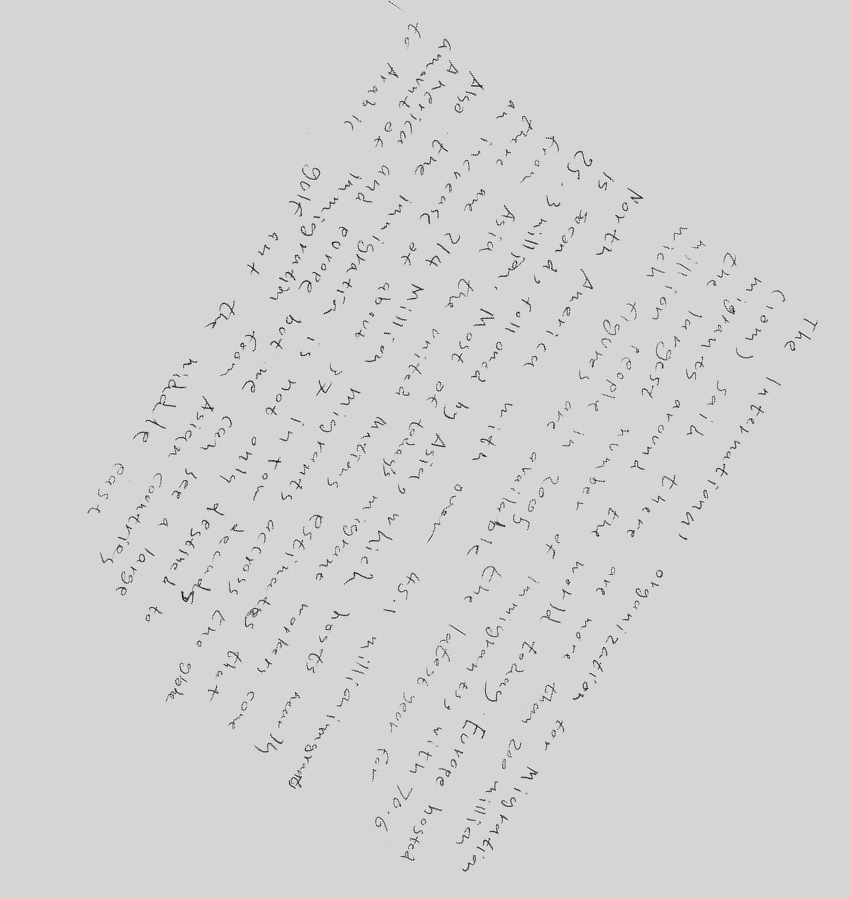 The International organization for Migration
(iom) said there are more than 200 million
migrants around the world today. Europe hosted
the largest number of immigrants, with 70.6
million people in 2005 the latest year for
wich figures are available
North America with over 45.1 million immigrants
is second, followed by Asia, which hosts nearly
25.3 million. Most of today's migrane workers come
from Asia the united Nations estimates that
there are 214 Million migrants accross the globe
an increase of about 37 in two decads
Also the immigration is not only destined to
America and europe but we can see a large
amount of immigration from Asian countries
to Arabic gulf ant the middle east